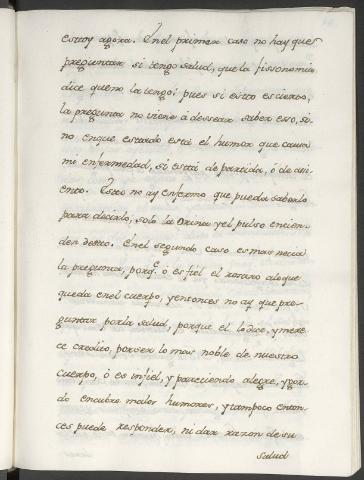 estoy agora. En el primer caso no hay que
preguntar si tengo salud, que la fissonomia
dice que no la tengo: pues si esto es cierto,
la pregunta no viene a dessear saber esso, si-
no en que estado está el humor que causa
mi enfermedad, si está de partida, ó de asi-
ento. Esto no ay enfermo que pueda saberlo
para decirlo, solo la Orina y el pulso entien-
den desto. En el segundo caso es mas necia
la pregunta, porq.e ó es fiel el rotaro a lo que
queda en el cuerpo, y entonces no ay que pre-
guntar por la salud, porque el lo dice, y mere-
ce credito, por ser lo mas noble de nuestro
cuerpo, ó es infiel, y pareciendo alegre, y gor-
do encubre malos humores, y tampoco enton-
ces puede responder, ni dar razon de su
salud